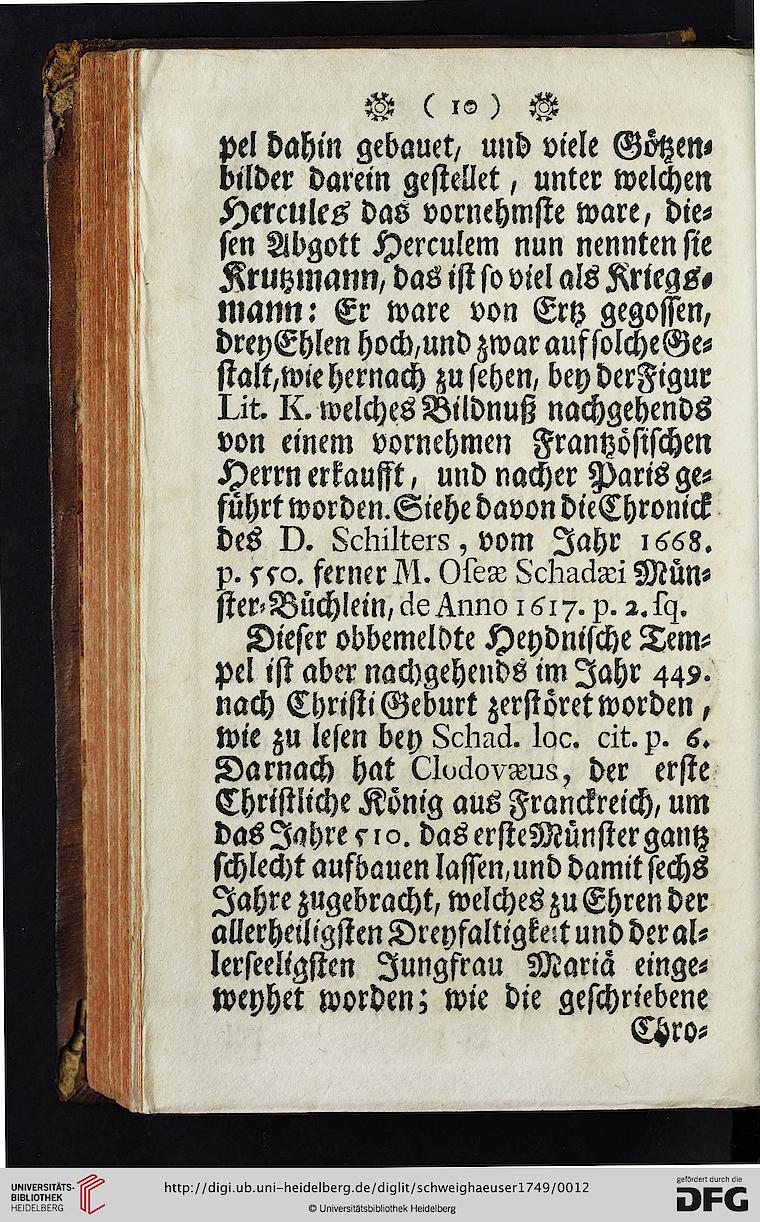 ( 10 )
pel dahin gebauet, und viele Götzen⸗
bilder darein gestellet, unter welchen
Hercules das vornehmste ware, die⸗
sen Abgott Herculem nun nennten sie
Krutzmann, das ist so viel als Kriegs⸗
mann: Er ware von Ertz gegossen,
drey Ehlen hoch, und zwar auf solche Ge⸗
stalt, wie hernach zu sehen, bey der Figur
Lit. K. welches Bildnuß nachgehends
von einem vornehmen Frantzösischen
Herrn erkaufft, und nacher Paris ge⸗
führt worden. Siehe davon die Chronick
des D. Schilters, vom Jahr 1668.
p. 550. ferner M. Oseæ Schadæi Mün⸗
ster⸗Büchlein, de Anno 1617. p. 2. sq.
Dieser obbemeldte Heydnische Tem⸗
pel ist aber nachgehends im Jahr 449.
nach Christi Geburt zerstöret worden,
wie zu lesen bey Schad. loc. cit. p. 6.
Darnach hat Clodovæus, der erste
Christliche König aus Franckreich, um
das Jahre 510. das erste Münster gantz
schlecht aufbauen lassen, und damit sechs
Jahre zugebracht, welches zu Ehren der
allerheiligsten Dreyfaltigkeit und der al⸗
lerseeligsten Jungfrau Mariä einge⸗
weyhet worden; wie die geschriebene
Chro⸗
UNIVERSITÄTS-
BIBLIOTHEK
HEIDELBERG
http://digi.ub.uni-heidelberg.de/diglit/schweighaeuser1749/0012
© Universitätsbibliothek Heidelberg
gefördert durch die
DFG